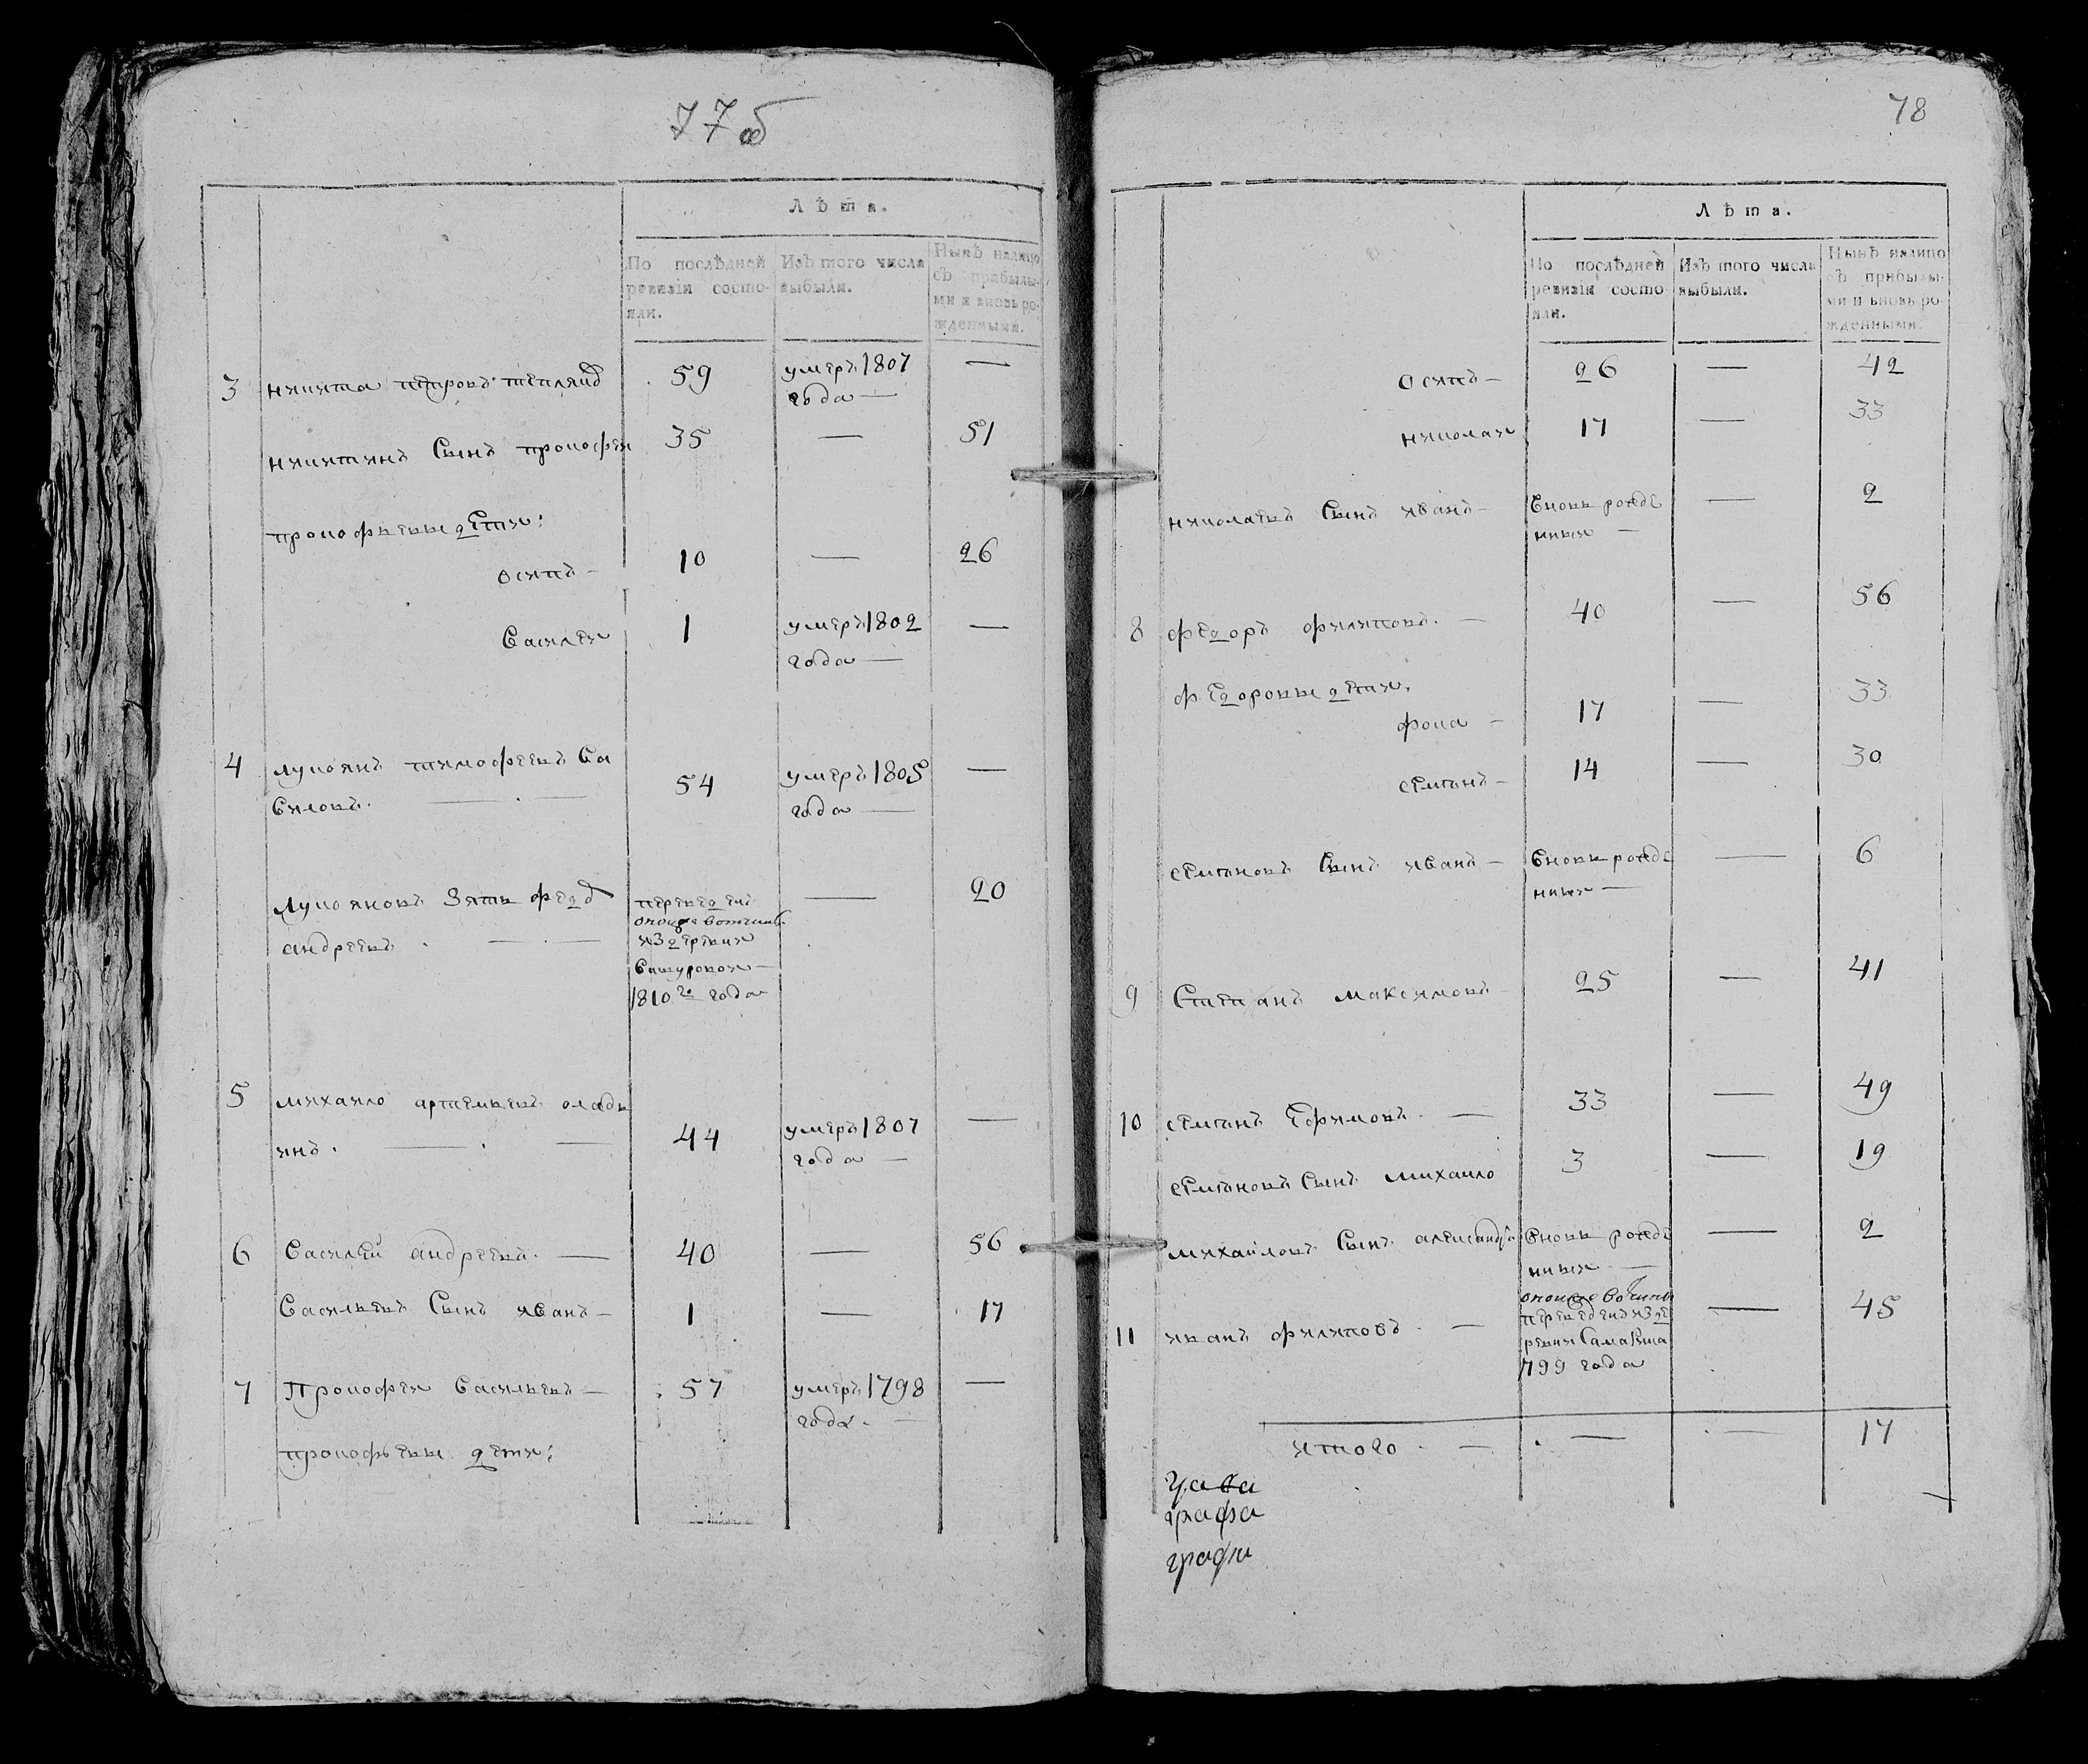 77об
Лѣта.
По послѣдней ревизіи состояли.
Изъ того числа выбыли.
Нынѣ налицо съ прибылыми и вновь рожденными.
3 никита петровъ 59 умеръ 1807 —
года —
никитинъ сынъ прокофеи 35 — 51
прокофьевы дети:
осипъ — 10 — 26
василеи 1 умеръ 1802 —
года —
4 лукоянъ тимофеевъ са
виловъ. — 54 умеръ 1805 —
года —
лукояновъ зять фед — 20
андреевъ. —
переведенъ
из деревни
1810 го года
5 михаило артемьевъ оладь
инъ. — 44 умеръ 1807 —
года —
6 василей андреевъ. — 40 — 56
васильевъ сынъ иванъ — 1 — 17
7 Прокофеи васильевъ — 57 умеръ 1798 —
года. —
прокофьевы дети:
78
Лѣта.
По послѣдней ревизіи состояли.
Изъ того числа выбыли.
Нынѣ налицо съ прибылыми и вновь рожденными.
осипъ — 26 — 42
николаи 17 — 33
николаевъ сынъ иванъ — вновь рожде — 2
нныи —
8 федоръ филиповъ. — 40 — 56
федоровы дети.
фока — 17 — 33
семонъ — 14 — 30
семоновъ сынъ иванъ — вновь рожде — 6
нныи —
9 степанъ максимовъ — 25 — 41
10 семонъ ефимовъ. — 33 — 49
семоновъ сынъ михаило 3 — 19
михаиловъ сынъ александръ вновь рожде — 2
нныи —
11 иванъ филиповъ. — — 45
переведенъ из де
ревни
799 года
итого. — — — 17
графа